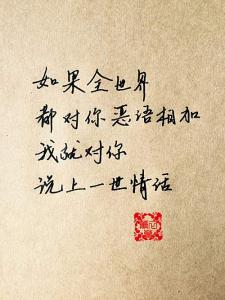 如果全世界
都对你恶语相加
我就对你
说上一世情话